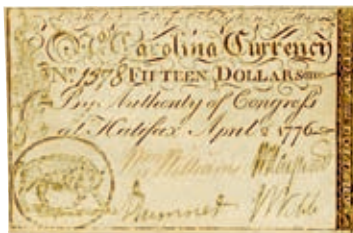 No Carolina Currency
No 1578 FIFTEEN DOLLARS
By Authority of Congress
at Halifax April 2 1776
Williams
Webb